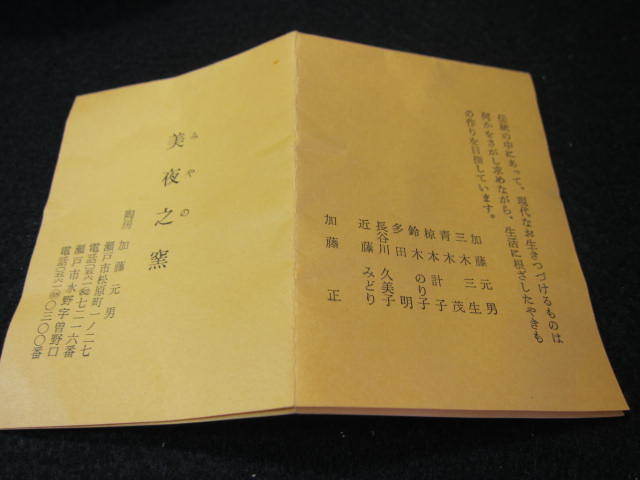 伝統の中にあって、現代なお生きつづけるものは
何かをさがし求めながら、生活に根ざしたやきも
の作りを目指しています。
加藤元男
三木三生
青木茂
椋木計子
鈴木のり子
多田明
長谷川久美子
近藤みどり
加藤正
みやの
美夜之窯
陶房 加藤元男
瀬戸市松原町一ノ二七
七二一六番
瀬戸市水野字曽野口
〇三〇〇番